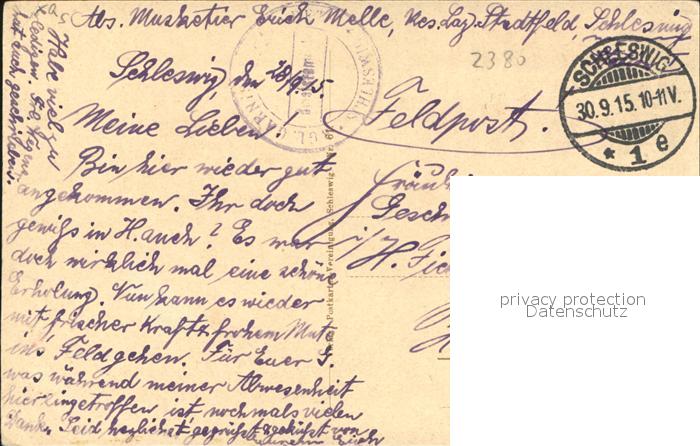 Abs. Musketier Erich Melle, Res. Laz. Stadtfeld, Schleswig
2380
SCHLESWIG
30.9.15. 10-11V.
* 1 e
Schleswig, den 28/9.15.
Feldpost.
Meine Lieben!
Bin hier wieder gut
angekommen. Ihr doch
gewiß in H. auch? Es war
doch wirklich mal eine schöne
Erholung. Nun kann es wieder
mit frischer Kraft & frohem Mut
in's Feld gehen. Für Euer
was während meiner Abwesenheit
hier eingetroffen ist, nochmals vielen
Dank. Seid herzlichst gegrüßt & geküßt von
Erich
Habe viel zu
hat Euch geschrieben.
Fräul
Gesch
i/
H.
Postkarten-Vereinigung, Schleswig
privacy protection
Datenschutz